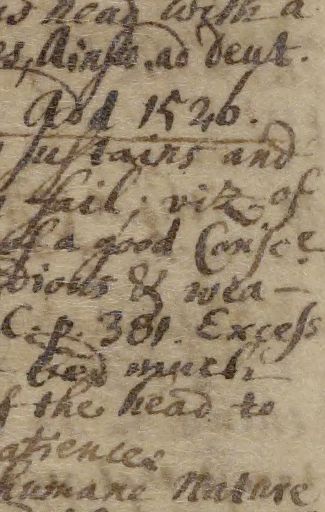 head with a
es, Ainsw. ad Deut.
Add 1526.
sustains and
fail; viz. of
of a good Consce
dious & wea-
C. p. 381. Excess
bed much
f the head to
atience:
humane Nature